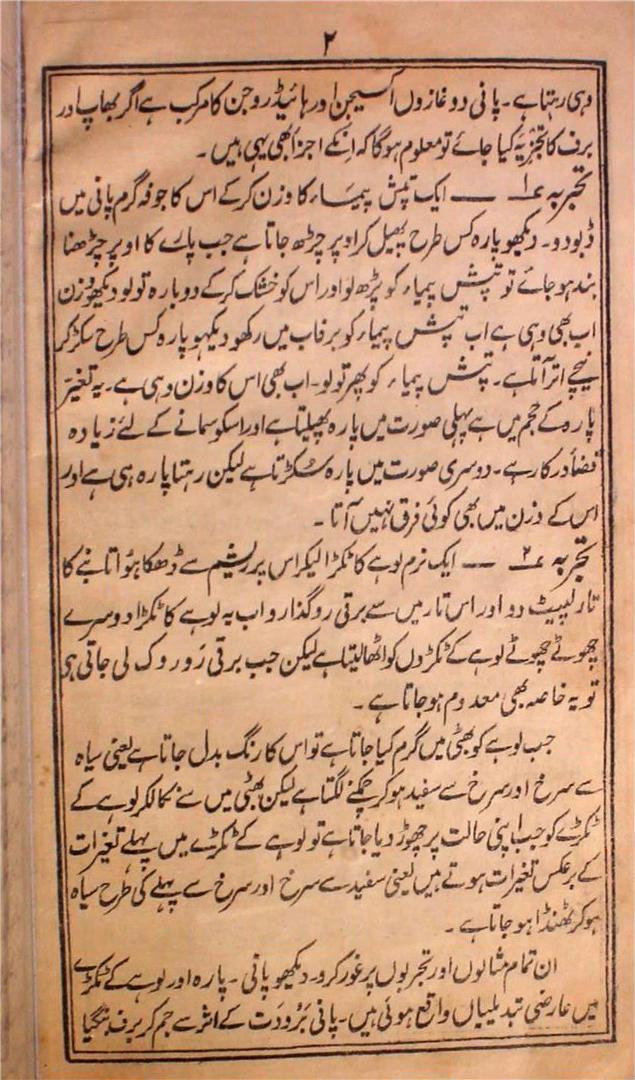 ۲
وہی رہتا ہے۔ پانی دو غازوں آکسیجن اور ہائیڈروجن کا مرکب ہے اگر بھاپ اور
برف کا تجزیہ کیا جائے تو معلوم ہوگا کہ انکے اجزا بھی یہی ہیں۔
تجربہ ۱ ـــ ایک تپش پیماء کا وزن کرکے اس کا جوفہ گرم پانی میں
ڈبو دو۔ دیکھو پارہ کس طرح پھیل کر اوپر چڑھ جاتا ہے جب پارے کا اوپر چڑھنا
بند ہو جائے تو تپش پیماء کو پڑھ لو اور اس کو خشک کرکے دوبارہ تولو دیکھو وزن
اب بھی وہی ہے اب تپش پیماء کو برفاب میں رکھو دیکھو پارہ کس طرح سکڑ کر
نیچے اتر آتا ہے۔ تپش پیماء کو پھر تولو۔ اب بھی اس کا وزن وہی ہے۔ یہ تغیر
پارہ کے حجم میں ہے پہلی صورت میں پارہ پھیلتا ہے اور اسکو سمانے کے لئے زیادہ
فضا درکار ہے۔ دوسری صورت میں پارہ سکڑتا ہے لیکن رہتا پارہ ہی ہے اور
اس کے وزن میں بھی کوئی فرق نہیں آتا۔
تجربہ ۲ ـــ ایک نرم لوہے کا ٹکڑا لیکر اس پر ریشم سے ڈھکا ہوا تانبے کا
تار لپیٹ دو اور اس تار میں سے برقی رو گذارو اب یہ لوہے کا ٹکڑا دوسرے
چھوٹے چھوٹے لوہے کے ٹکڑوں کو اٹھا لیتا ہے لیکن جب برقی رَو روک لی جاتی ہی
تو یہ خاصہ بھی معدوم ہو جاتا ہے۔
جب لوہے کو بھٹی میں گرم کیا جاتا ہے تو اس کا رنگ بدل جاتا ہے یعنی سیاہ
سے سرخ اور سرخ سے سفید ہو کر چمکنے لگتا ہے لیکن بھٹی میں سے نکالکر لوہے کے
ٹکڑے کو جب اپنی حالت پر چھوڑ دیا جاتا ہے تو لوہے کے ٹکڑے میں پہلے تغیرات
کے برعکس تغیرات ہوتے ہیں یعنی سفید سے سرخ اور سرخ سے پہلے کی طرح سیاہ
ہو کر ٹھنڈا ہو جاتا ہے۔
ان تمام مثالوں اور تجربوں پر غور کرو۔ دیکھو پانی۔ پارہ اور لوہے کے ٹکڑے
میں عارضی تبدیلیاں واقع ہوئی ہیں۔ پانی بُرُودَت کے اثر سے جم کر برف بنگیا